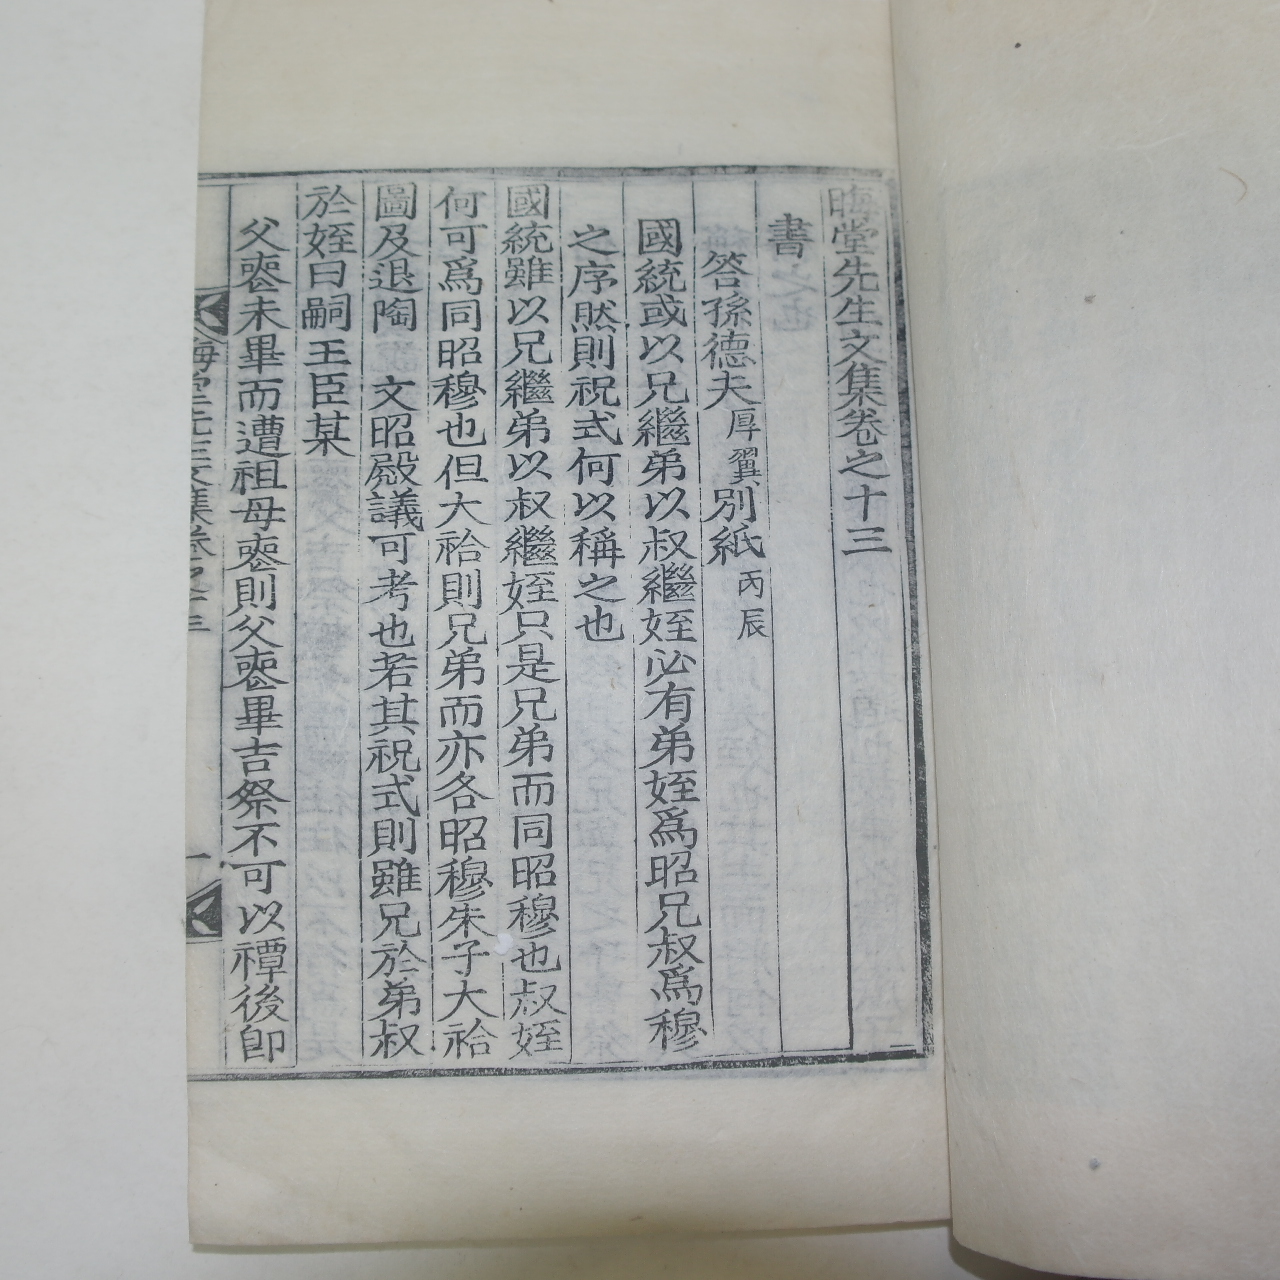 晦堂先生文集卷之十三
書
答孫德夫厚翼別紙丙辰
國統或以兄繼弟以叔繼姪必有弟姪爲昭兄叔爲穆
之序然則祝式何以稱之也
國統雖以兄繼弟以叔繼姪只是兄弟而同昭穆也叔姪
何可爲同昭穆也但大祫則兄弟而亦各昭穆朱子大祫
圖及退陶 文昭殿議可考也若其祝式則雖兄於弟叔
於姪曰嗣王臣某
父喪未畢而遭祖母喪則父喪畢吉祭不可以禫後卽
晦堂先生文集卷之十三 一